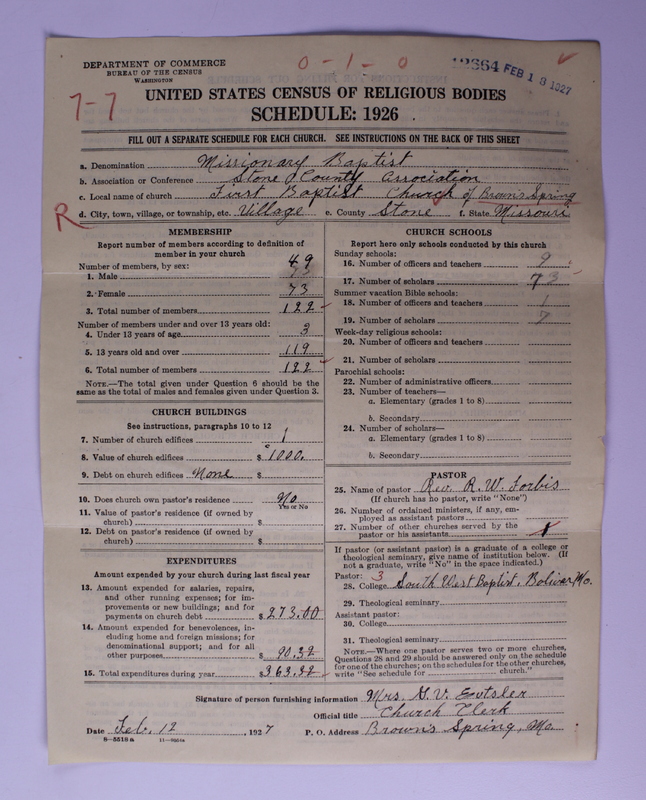 DEPARTMENT OF COMMERCE
BUREAU OF THE CENSUS
WASHINGTON
0-1-0
12664 FEB 18 1927
7-7
UNITED STATES CENSUS OF RELIGIOUS BODIES
SCHEDULE: 1926
FILL OUT A SEPARATE SCHEDULE FOR EACH CHURCH. SEE INSTRUCTIONS ON THE BACK OF THIS SHEET
a. Denomination Missionary Baptist
b. Association or Conference Stone County Association
c. Local name of church First Baptist Church of Browns Spring
R
d. City, town, village, or township, etc. Village e. County Stone f. State Missouri
MEMBERSHIP
Report number of members according to definition of
member in your church
Number of members, by sex:
1. Male 49
2. Female 73
3. Total number of members 122
Number of members under and over 13 years old:
4. Under 13 years of age 3
5. 13 years old and over 119
6. Total number of members 122
NOTE.—The total given under Question 6 should be the
same as the total of males and females given under Question 3.
CHURCH BUILDINGS
See instructions, paragraphs 10 to 12
7. Number of church edifices 1
8. Value of church edifices $1000.
9. Debt on church edifices None $
10. Does church own pastor's residence No
Yes or No
11. Value of pastor's residence (if owned by
church) $
12. Debt on pastor's residence (if owned by
church) $
EXPENDITURES
Amount expended by your church during last fiscal year
13. Amount expended for salaries, repairs,
and other running expenses; for im-
provements or new buildings; and for
payments on church debt $273.00
14. Amount expended for benevolences, in-
cluding home and foreign missions; for
denominational support; and for all
other purposes $90.32
15. Total expenditures during year $363.32
CHURCH SCHOOLS
Report here only schools conducted by this church
Sunday schools:
16. Number of officers and teachers 9
17. Number of scholars 73
Summer vacation Bible schools:
18. Number of officers and teachers 1
19. Number of scholars 7
Week-day religious schools:
20. Number of officers and teachers
21. Number of scholars
Parochial schools:
22. Number of administrative officers
23. Number of teachers—
a. Elementary (grades 1 to 8)
b. Secondary
24. Number of scholars—
a. Elementary (grades 1 to 8)
b. Secondary
PASTOR
25. Name of pastor Rev. R. W. Forbis
(If church has no pastor, write "None")
26. Number of ordained ministers, if any, em-
ployed as assistant pastors
27. Number of other churches served by the
pastor or his assistants 1
If pastor (or assistant pastor) is a graduate of a college or
theological seminary, give name of institution below. (If
not a graduate, write "No" in the space indicated.)
Pastor: 3
28. College South West Baptist, Bolivar, Mo.
29. Theological seminary
Assistant pastor:
30. College
31. Theological seminary
NOTE.—Where one pastor serves two or more churches,
Questions 28 and 29 should be answered only on the schedule
for one of the churches; on the schedules for the other churches,
write "See schedule for church."
Signature of person furnishing information Mrs. G. V. Eutsler
Official title Church Clerk
Date Feb. 12, 1927 P. O. Address Browns Spring, Mo.
8-5518 a